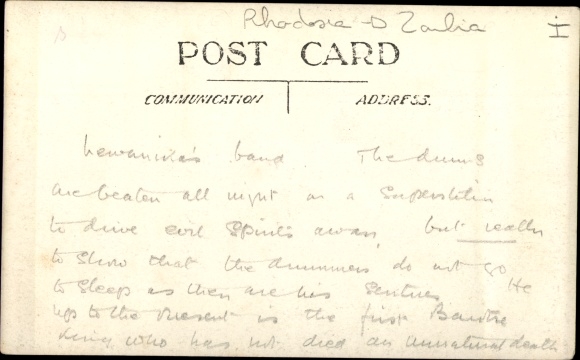 Rhodesia → Zambia
I
POST CARD
COMMUNICATION ADDRESS.
Lewanika's band. The drums
are beaten all night as a superstition
to drive evil spirits away, but really
to show that the drummers do not go
to sleep as they are his sentries He
up to the present is the first Barotse
King who has not died an unnatural death